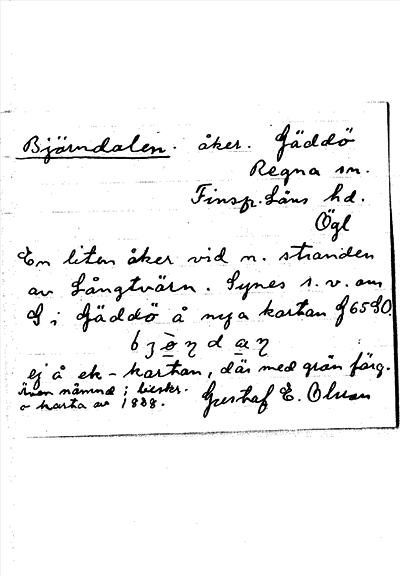 Björndalen. åker. Gäddö
Regna sn.
Finsp. Läns hd.
Ögl
En liten åker vid n. stranden
av Långtvärn. Synes s.v. om
G i Gäddö å nya kartan
ej å ek-kartan, där med grön färg.
Även nämnd i beskr.
o karta av 1888.
Gustaf E. Olsson